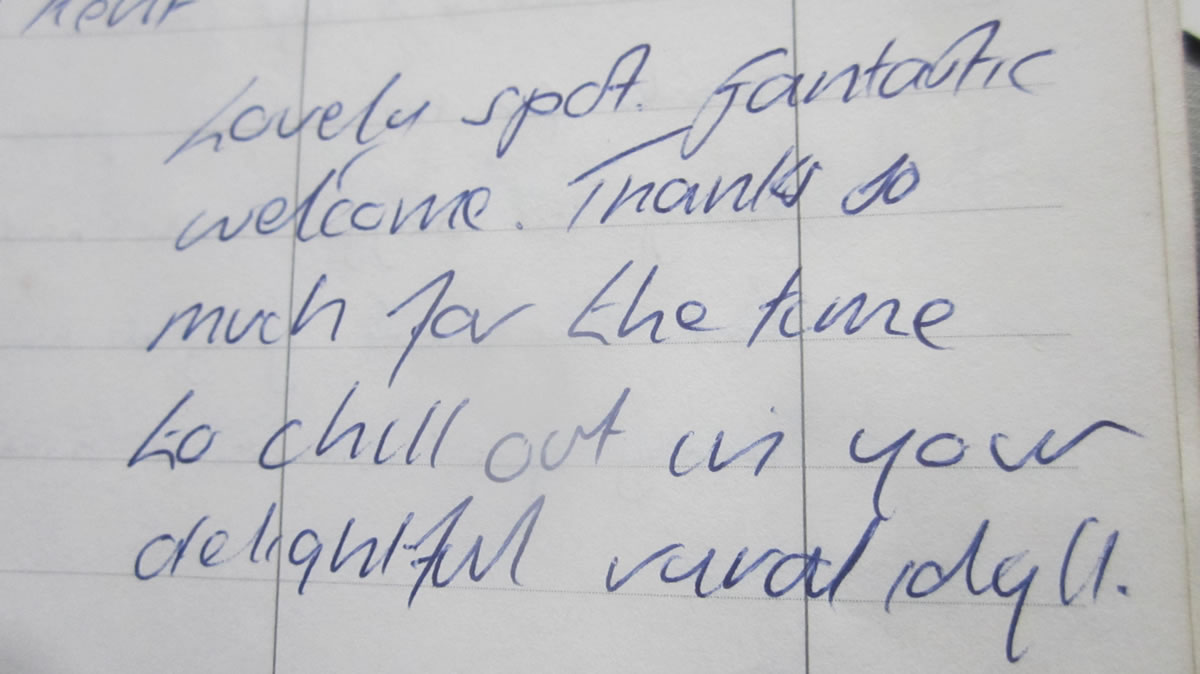 Kent
Lovely spot. Fantastic
welcome. Thanks so
much for the time
to chill out in your
delightful rural idyll.